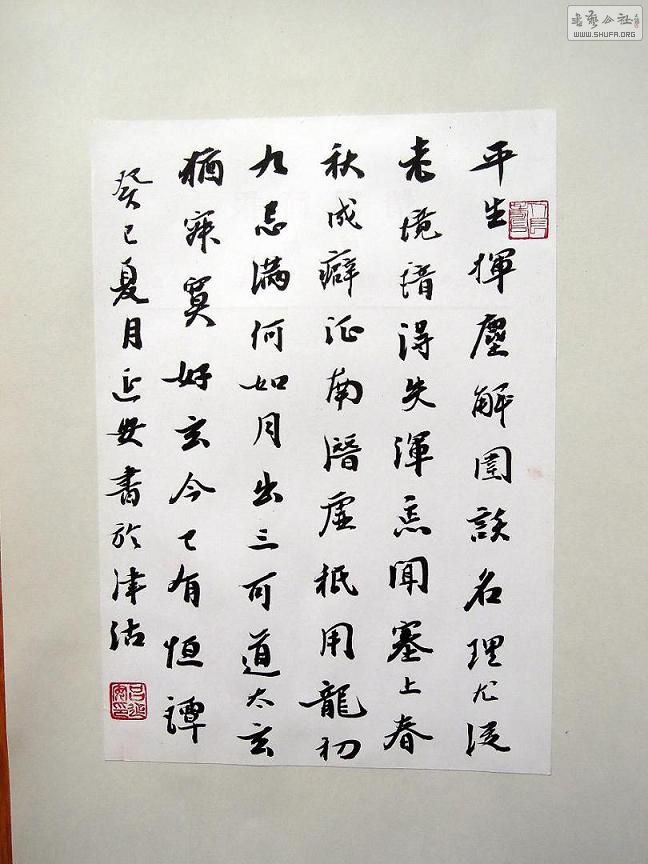 平生揮塵解圍談名理尤從
老境諳得失渾忘聞塞上春
秋成癖征南潛虛祇用龍初
九忌滿何如月出三可道太玄
猶寂寞好玄今已有恒譚
癸巳夏月延安書於津沽
呂延安印
書藝公社
WWW.SHUFA.ORG